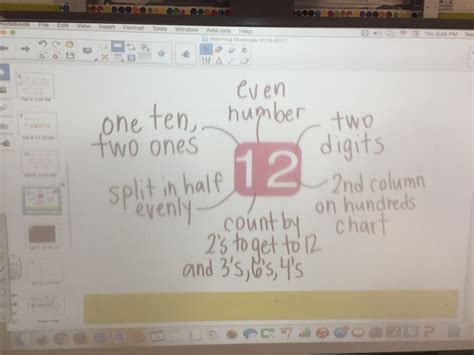 Notebook
View
Insert
Format
Tools
Add-ons
Help
Morning Message 2016-2017
even
number
one ten,
two ones
two
digits
12
split in half
evenly
2nd column
on hundreds
chart
count by
2's to get to 12
and 3's, 6's, 4's